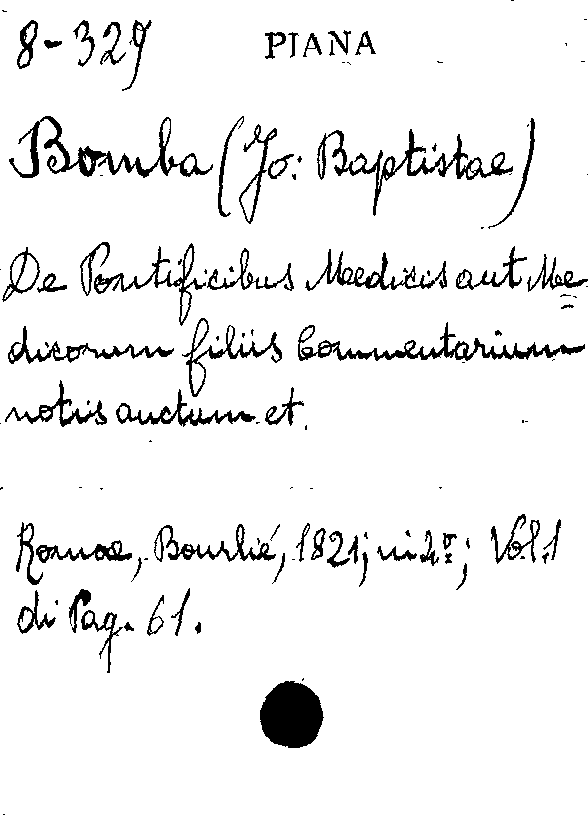 8-329 PIANA
Bomba (Jo: Baptistae)
De Pontificibus Medicis aut Me=
dicorum filiis Commentarium
notis auctum et.
Romae, Bourlié, 1821; in 4º; Vol. 1
di Pag. 61.